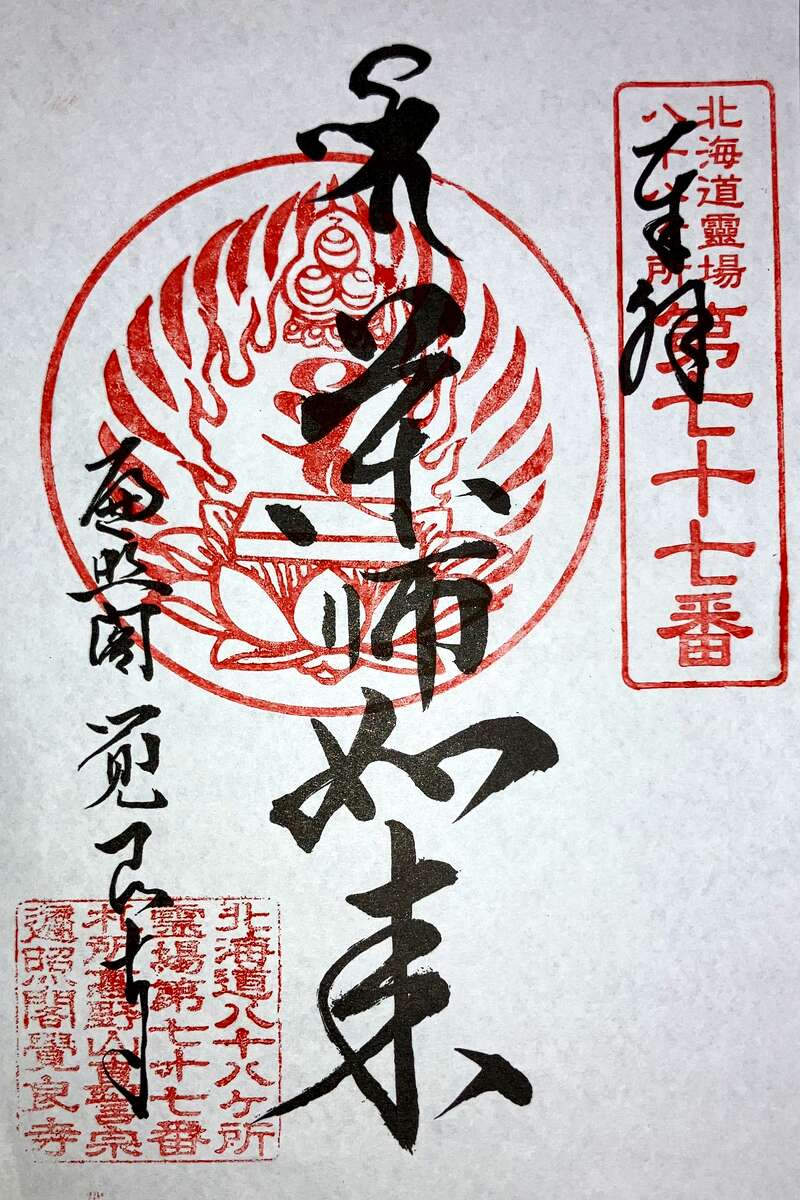 北海道靈場
八十八ヶ所
第七十七番
奉拝
薬師如来
遍照閣 覚良寺
北海道八十八ヶ所
霊場第七十七番
札所高野山真言宗
遍照閣覺良寺